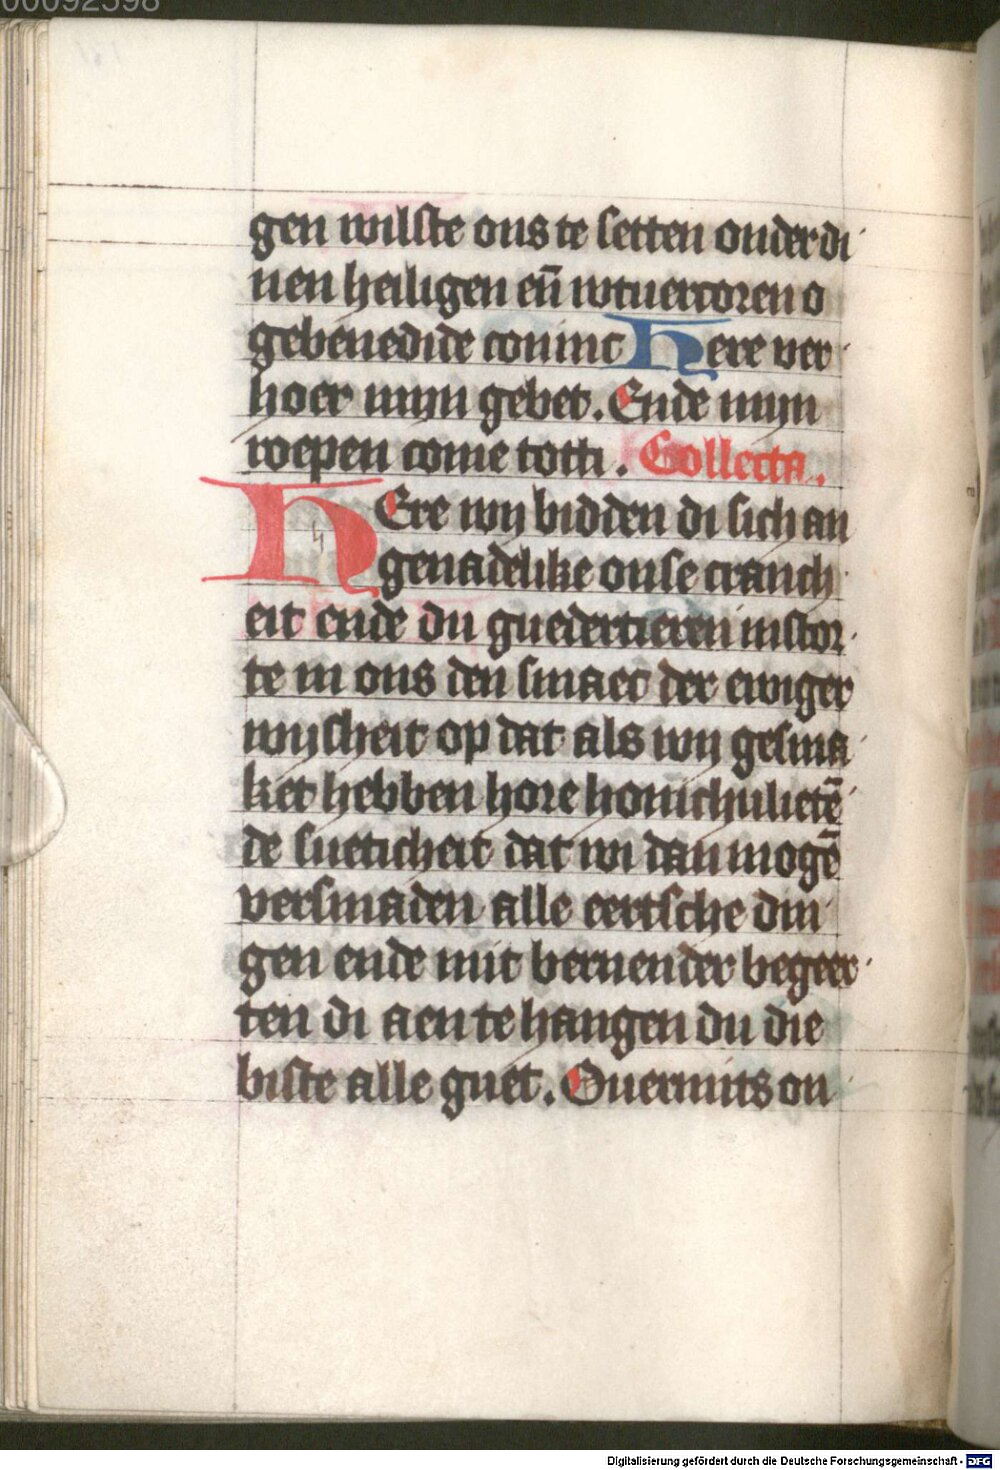 00092598
gen wilste ons te setten onder di
nen heiligen eñ wtuercoren o
gebenedide coninc Here ver
hoer mijn gebet. Ende mijn
roepen come totti. Collecta.
HEre wij bidden di sich an
genadelike onse cranch
eit ende du guedertieren instor
te in ons den smaec der ewiger
wijsheit op dat als wij gesma
ket hebben hore honichulietẽ
de sueticheit dat wi dan mogẽ
versmaden alle eertsche din
gen ende mit bernender begeer
ten di aen te hangen du die
biste alle guet. Ouermits on
Digitalisierung gefördert durch die Deutsche Forschungsgemeinschaft - DFG